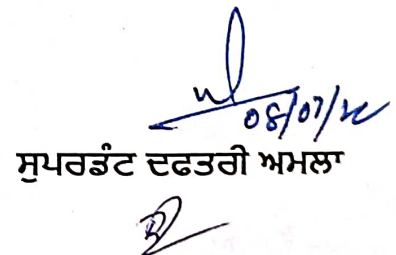 08/07/
ਸੁਪਰਡੰਟ ਦਫਤਰੀ ਅਮਲਾ